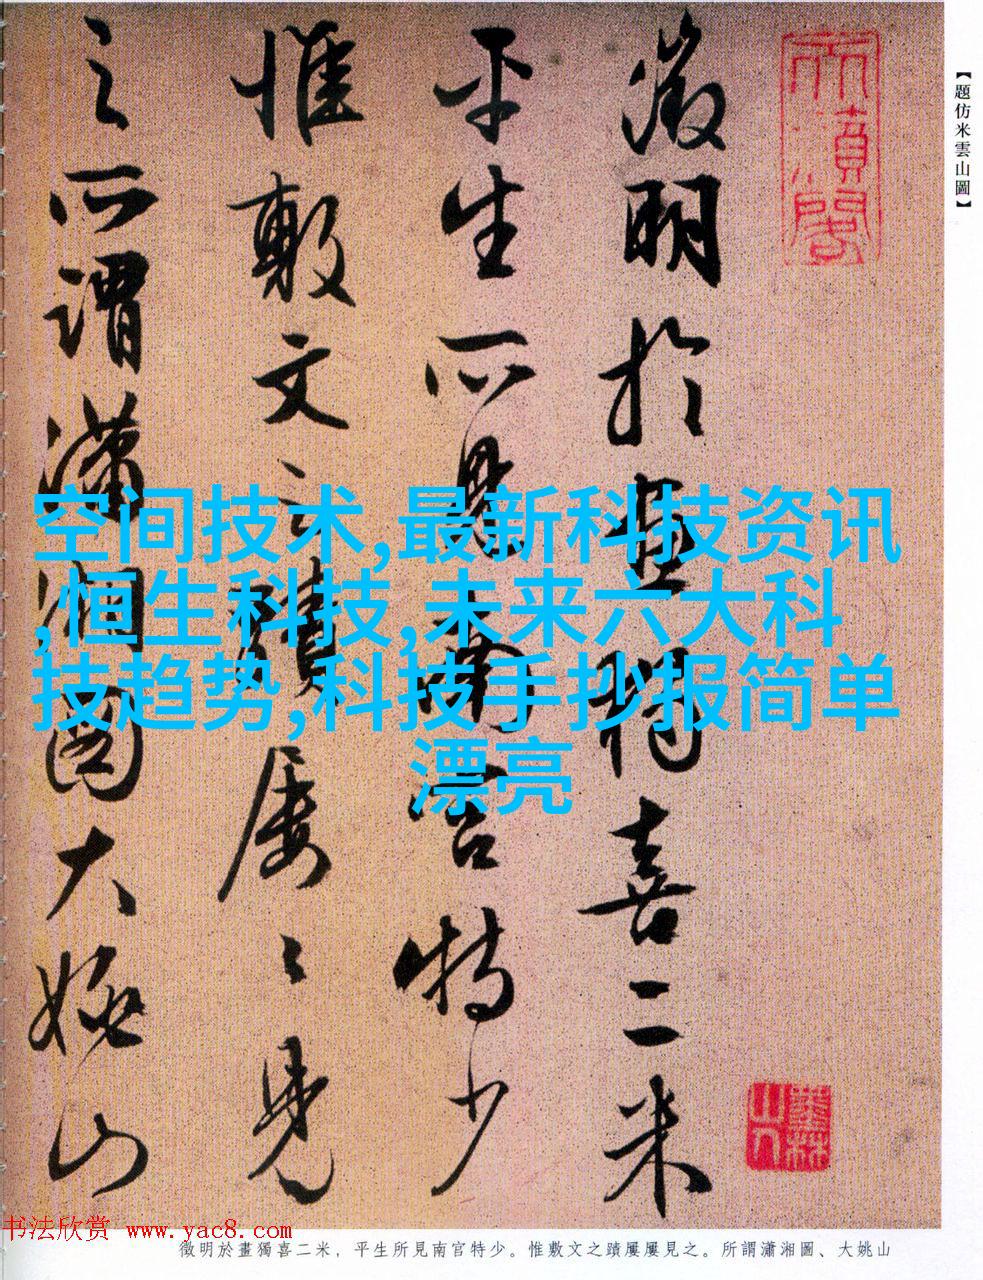 【題仿米雲山圖】
徵明於畫獨喜二米
平生所見南宮特少
惟敷文之蹟屢〻見
之所謂瀟湘圖大姚山
空间技术,最新科技资讯
,恒生科技,未来六大科
技趋势,科技手抄报简单
漂亮
墨林山人
书法欣赏 www.yac8.com
徵明於畫獨喜二米，平生所見南宮特少。惟敷文之蹟屢屢見之。所謂瀟湘圖、大姚山